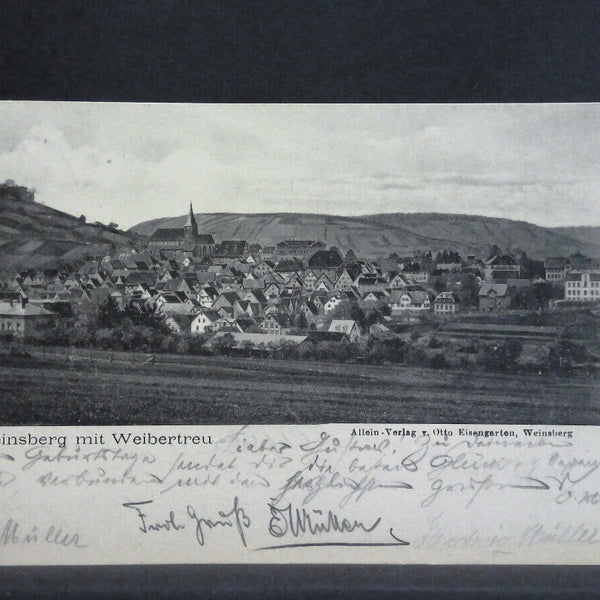 einsberg mit Weibertreu
Allein-Verlag v. Otto Eisengarten, Weinsberg
Lieber Gustav. Zu Deinem
Geburtstage sendet dir die besten
verbunden mit den herzlichsten Grüßen
Müller Froh. Gruß EMüller Hedwig Müller